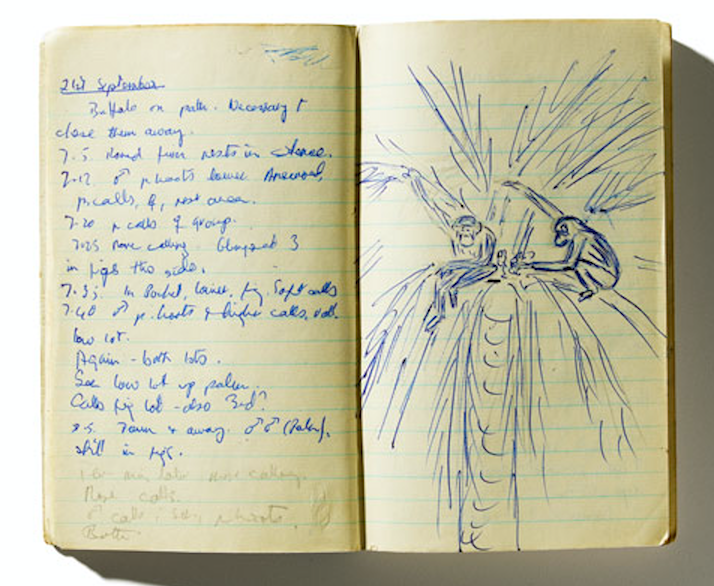 21st September
Buffalo on path. Necessary t
chase them away.
7.5 Round from nests in
7.12 ♂ p.hoots lower
p.calls, ♀, nest area.
7.20 p calls ♀ group.
7.25 more calling. Glimpsed 3
in figs this side.
7.35 In lower, fig. Soft calls
7.40 ♂ p.hoots & higher calls,
low lot.
Again - both lots.
See low lot up palm.
Calls fig lot - also 3rd?
8.5. Down & away. ♂♂ (Palm),
still in figs.
min later more calling.
More calls.
♂ calls, p.hoots.
Both.